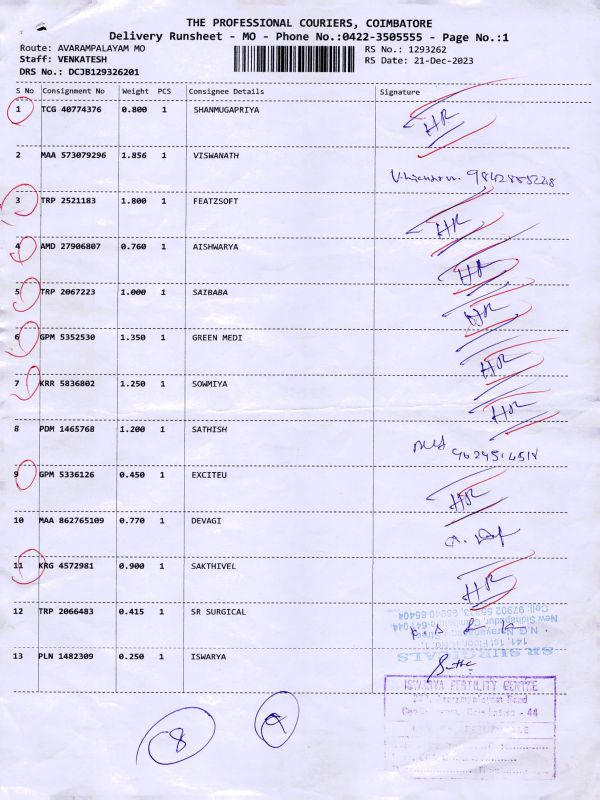 THE PROFESSIONAL COURIERS, COIMBATORE
Delivery Runsheet - MO - Phone No.:0422-3505555 - Page No.:1
Route: AVARAMPALAYAM MO
RS No.: 1293262
Staff: VENKATESH
RS Date: 21-Dec-2023
DRS No.: DCJB129326201
S No Consignment No Weight PCS Consignee Details Signature
1 TCG 40774376 0.800 1 SHANMUGAPRIYA HR
2 MAA 573079296 1.856 1 VISWANATH
3 TRP 2521183 1.800 1 FEATZSOFT HR
4 AMD 27906807 0.760 1 AISHWARYA HR
5 TRP 2067223 1.000 1 SAIBABA HR
6 GPM 5352530 1.350 1 GREEN MEDI HR
7 KRR 5836802 1.250 1 SOWMIYA HR
8 PDM 1465768 1.200 1 SATHISH
9 GPM 5336126 0.450 1 EXCITEU HR
10 MAA 862765109 0.770 1 DEVAGI
11 KRG 4572981 0.900 1 SAKTHIVEL HR
12 TRP 2066483 0.415 1 SR SURGICAL
SR SURGICALS
13 PLN 1482309 0.250 1 ISWARYA
ISWARYA FERTILITY CENTRE
- 44
8 9